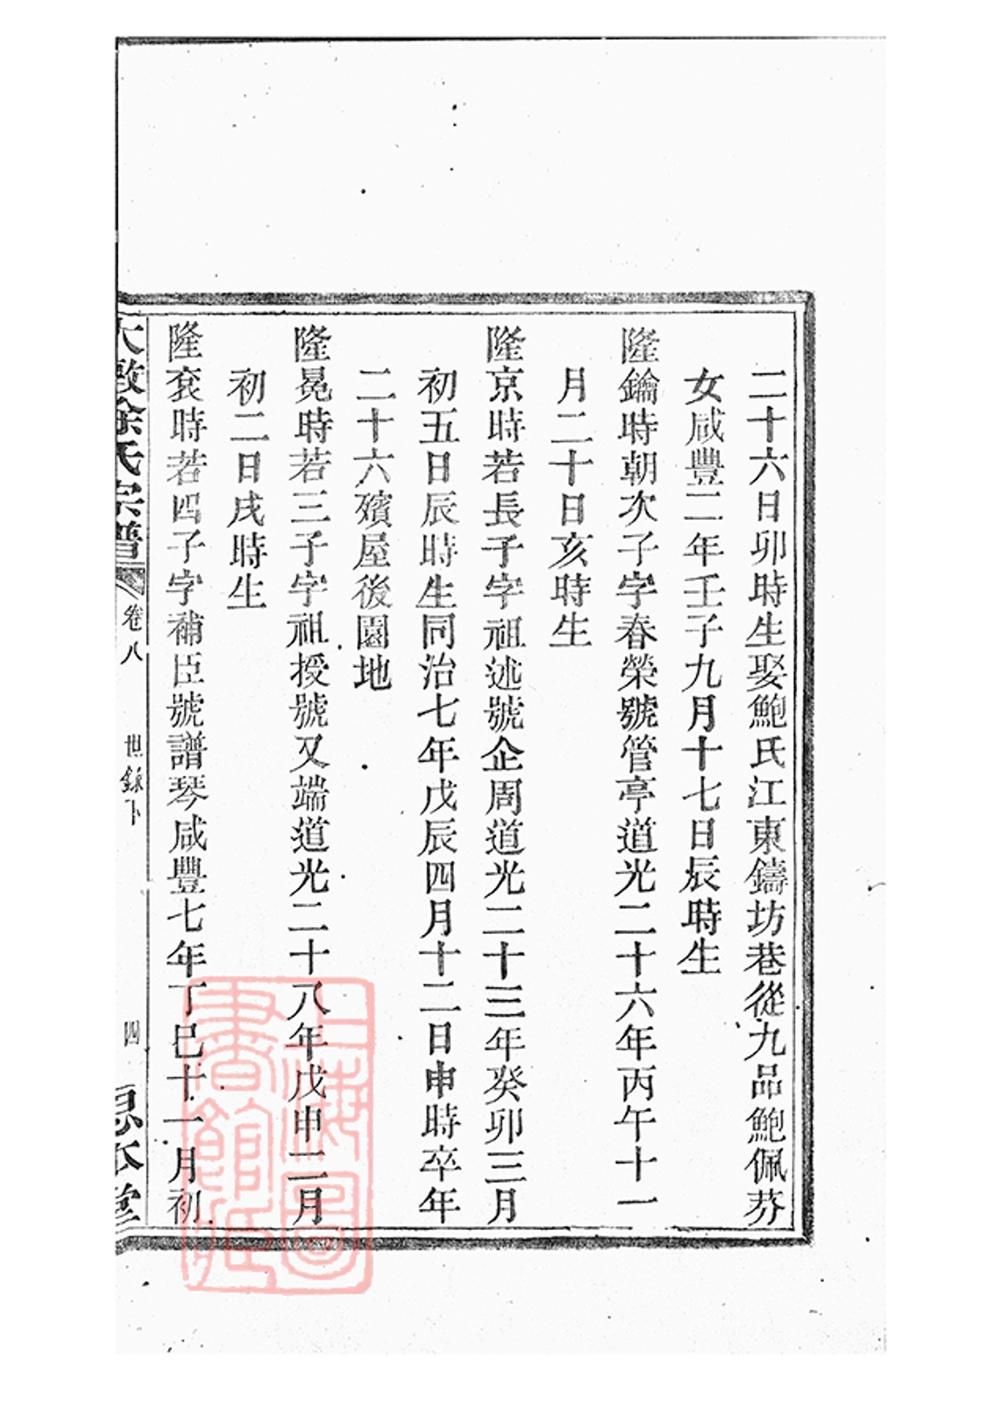 二十六日卯時生娶鮑氏江東鑄坊巷從九品鮑佩芬
女咸豐二年壬子九月十七日辰時生
隆鑰時朝次子字春榮號管亭道光二十六年丙午十一
月二十日亥時生
隆京時若長子字祖述號企周道光二十三年癸卯三月
初五日辰時生同治七年戊辰四月十二日申時卒年
二十六殯屋後園地
隆冕時若三子字祖授號又端道光二十八年戊申二月
初二日戌時生
隆袞時若四子字補臣號譜琴咸豐七年丁巳十一月初
大墩徐氏宗譜
卷八
世錄下
四
思本堂
上海圖書館藏